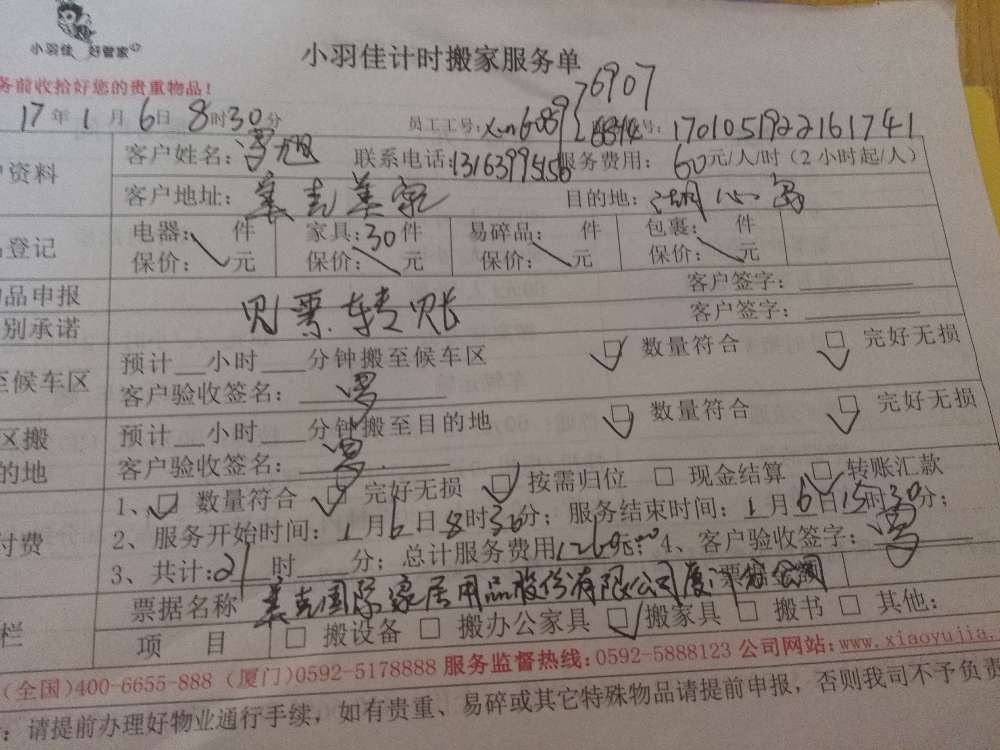 小羽佳 好管家
小羽佳计时搬家服务单
务前收拾好您的贵重物品!
17年1月6日8时30分 员工工号: 6907 号: 1701051922161741
户资料 客户姓名: 联系电话:13163995156 服务费用: 60元/人/时(2小时起/人)
客户地址: 美克美家 目的地: 湖心岛
品登记 电器: 件 家具:30件 易碎品: 件 包裹: 件
保价: 元 保价: 元 保价: 元 保价: 元
物品申报 客户签字:
别承诺 见票转账 客户签字:
至候车区 预计 小时 分钟搬至候车区 数量符合 完好无损
客户验收签名:
区搬 预计 小时 分钟搬至目的地 数量符合 完好无损
的地 客户验收签名:
1、 数量符合 完好无损 按需归位 现金结算 转账汇款
付费 2、服务开始时间:1月6日8时30分;服务结束时间:1月6日15时30分;
3、共计:21时 分;总计服务费用1260元; 4、客户验收签字:
票据名称 美克国际家居用品股份有限公司厦门分公司
栏 项 目 搬设备 搬办公家具 搬家具 搬书 其他:
(全国)400-6655-888 (厦门)0592-5178888 服务监督热线:0592-5888123 公司网站:www.xiaoyujia.
:请提前办理好物业通行手续,如有贵重、易碎或其它特殊物品请提前申报,否则我司不予负责